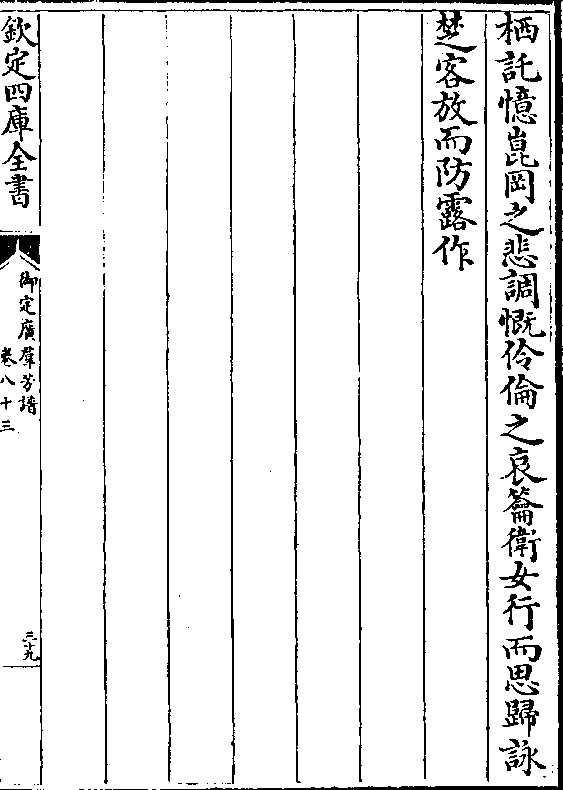 栖託憶崑岡之悲調慨伶倫之哀籥衛女行而思歸詠
楚客放而防露作
欽定四庫全書
御定廣羣芳譜
卷八十三
三十九